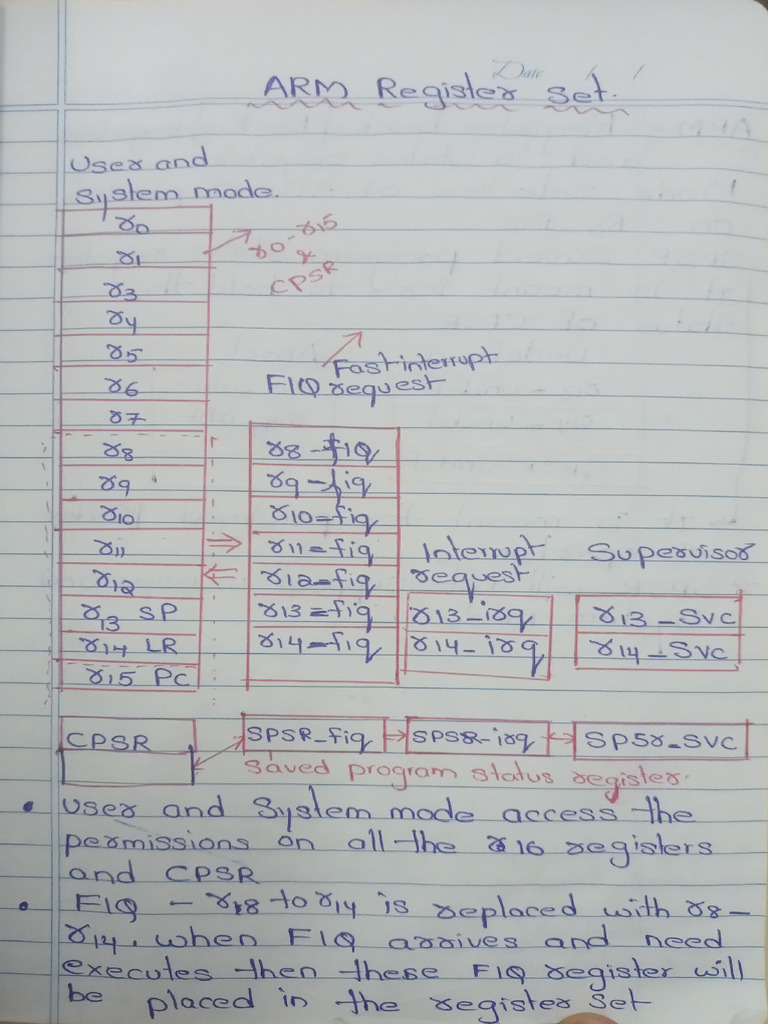 Date / /
ARM Register Set.
User and
System mode.
r0
r1
r0-r15
&
CPSR
r3
r4
r5
r6
r7
Fast interrupt
FIQ request
r8
r9
r10
r11
r12
r13 SP
r14 LR
r15 PC
r8-fIQ
r9-fiq
r10=fiq
r11=fiq
r12=fiq
r13=fiq
r14=fiq
Interrupt
request
r13-irq
r14-irq
Supervisor
r13-Svc
r14-Svc
CPSR
SPSR-fiq
SPSR-irq
SPSr-SVC
Saved program status register.
• User and System mode access the
permissions on all the 16 registers
and CPSR
• FIQ - r8 to r14 is replaced with r8-
r14. when FIQ arrives and need
executes then these FIQ register will
be placed in the register set